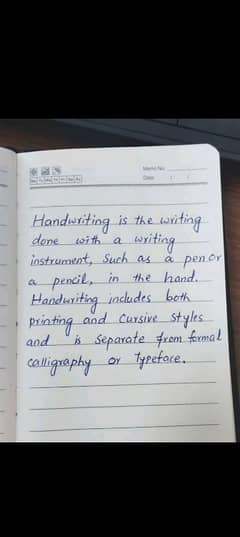 Memo No.
Date / /
Mo Tu We Th Fr Sa Su
Handwriting is the writing
done with a writing
instrument, Such as a pen or
a pencil, in the hand.
Handwriting includes both
printing and cursive styles
and is separate from formal
calligraphy or typeface.